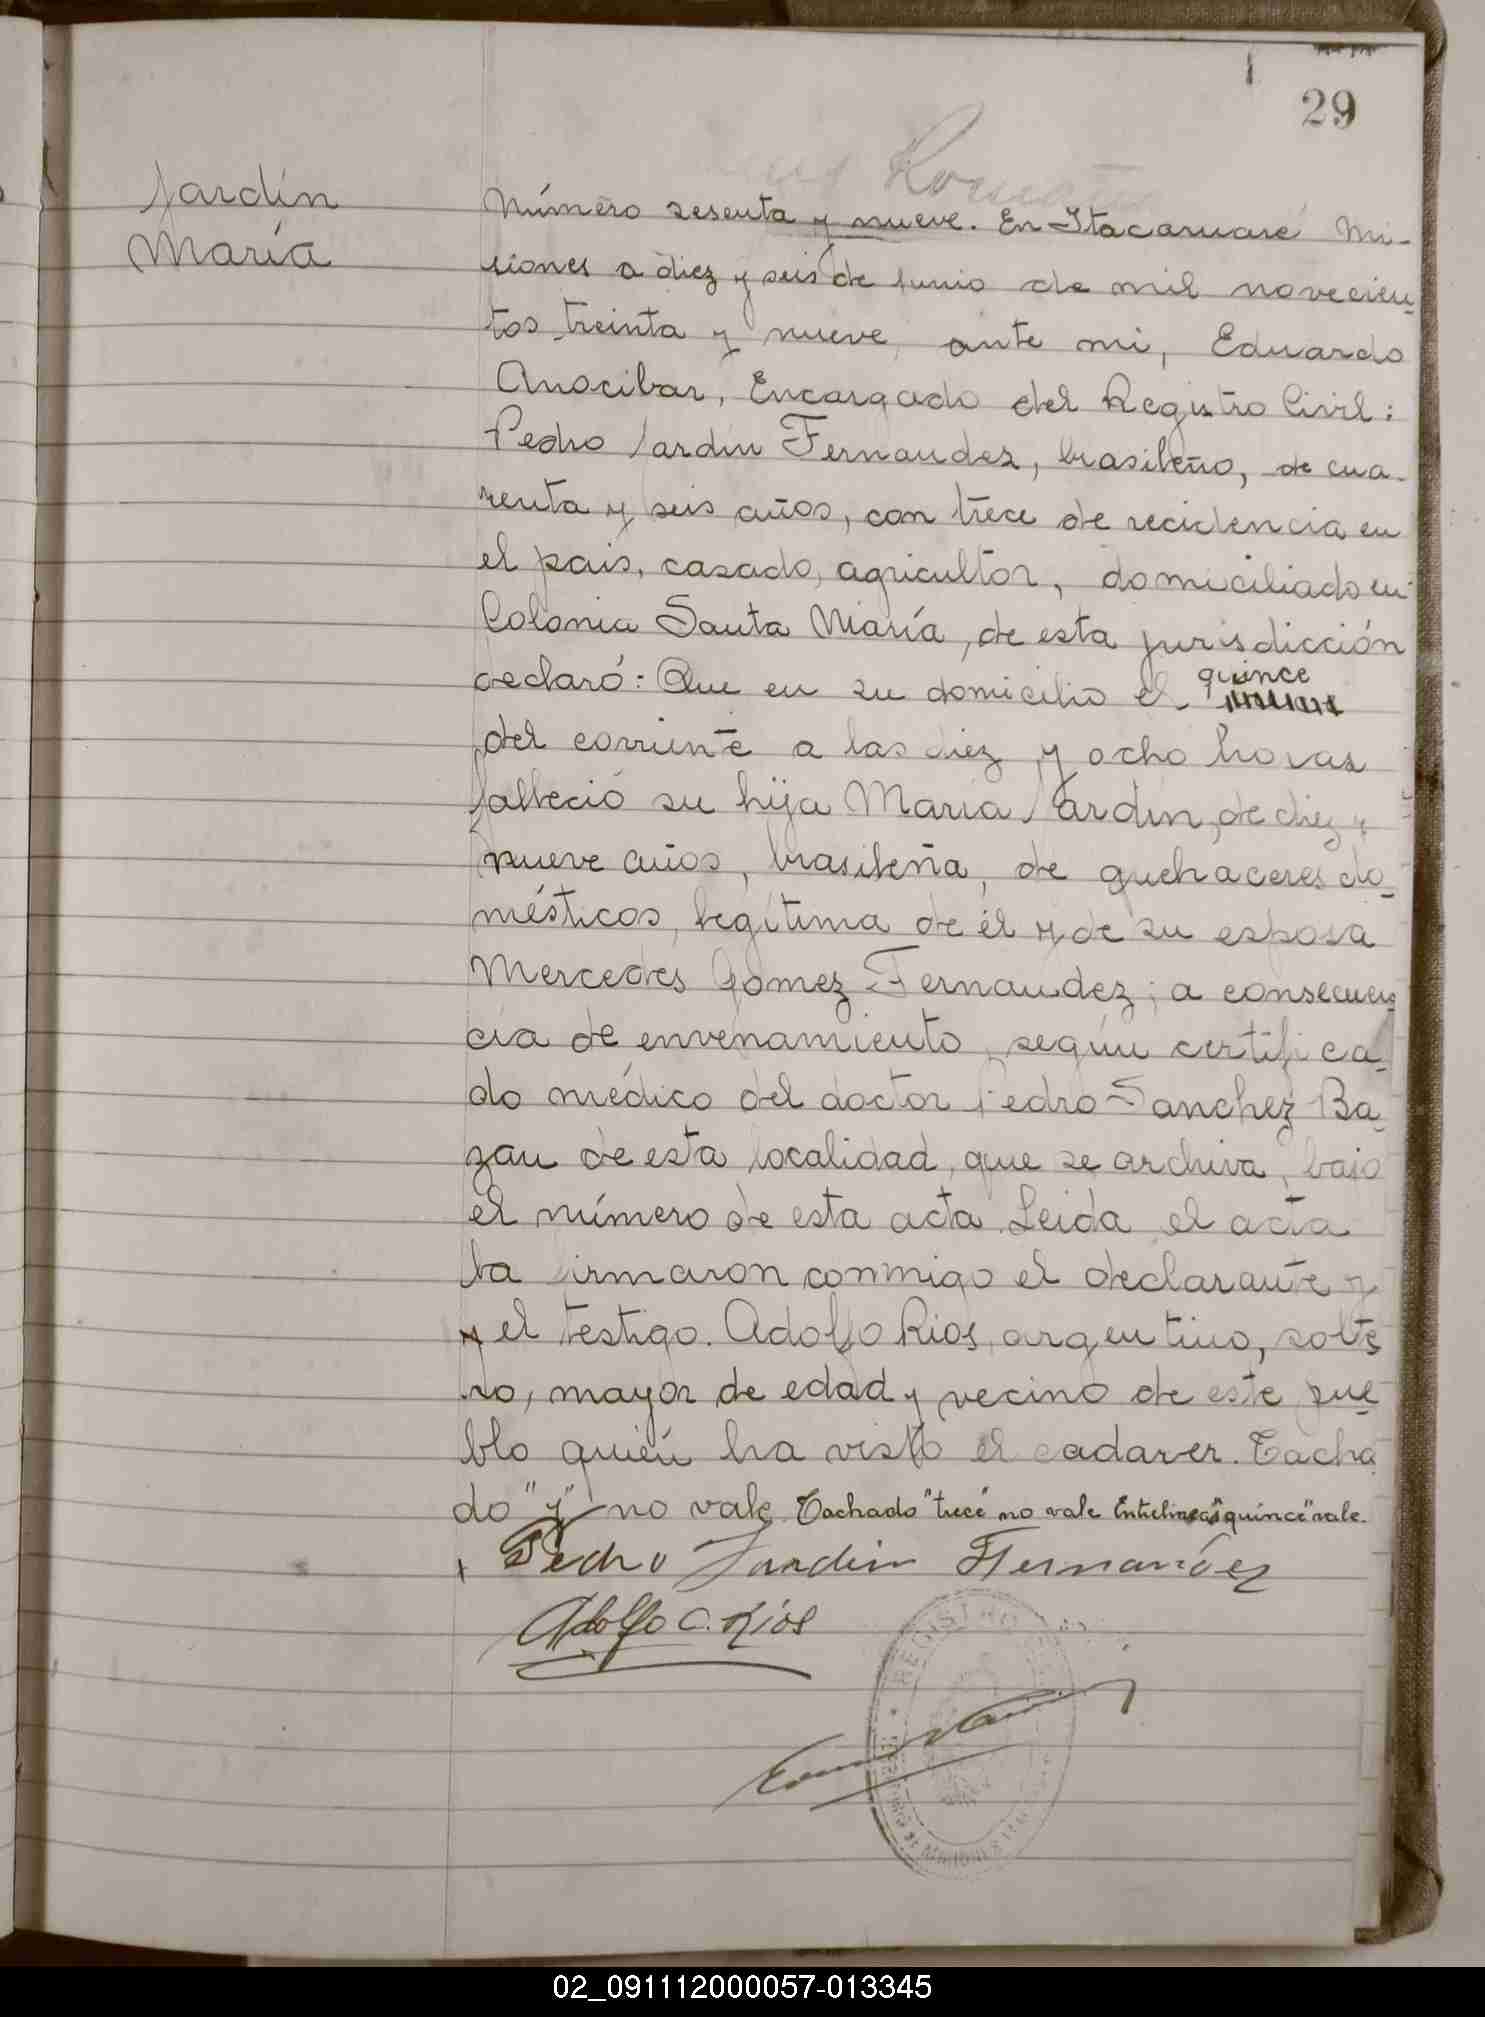 29
Jardín
María
Número sesenta y nueve. En Itacaruaré Mi-
siones a diez y seis de junio de mil novecien-
tos treinta y nueve, ante mi, Eduardo
Anocibar, Encargado del Registro Civil:
Pedro Jardin Fernandez, brasileño, de cua-
renta y seis años, con trece de recidencia en
el pais, casado, agricultor, domiciliado en
Colonia Santa María, de esta jurisdicción
declaró: Que en su domicilio el quince
del corriente a las diez y ocho horas
falleció su hija María Jardín, de diez y
nueve años, brasileña, de quehaceres do-
mésticos, legítima de él y de su esposa
Mercedes Gomez Fernandez; a consecuen-
cia de envenamiento, según certifica-
do médico del doctor Pedro Sanchez Ba-
zan de esta localidad, que se archiva, bajo
el número de esta acta. Leida el acta
la firmaron conmigo el declarante y
y el testigo. Adolfo Rios, argentino, solte-
ro, mayor de edad y vecino de este pue-
blo quién ha visto el cadaver. Tacha-
do "y" no vale. Tachado "trece" no vale Entrelineas "quince" vale.
Pedro Jardin Fernandez
Adolfo C. Rios
REGISTRO
02_091112000057-013345